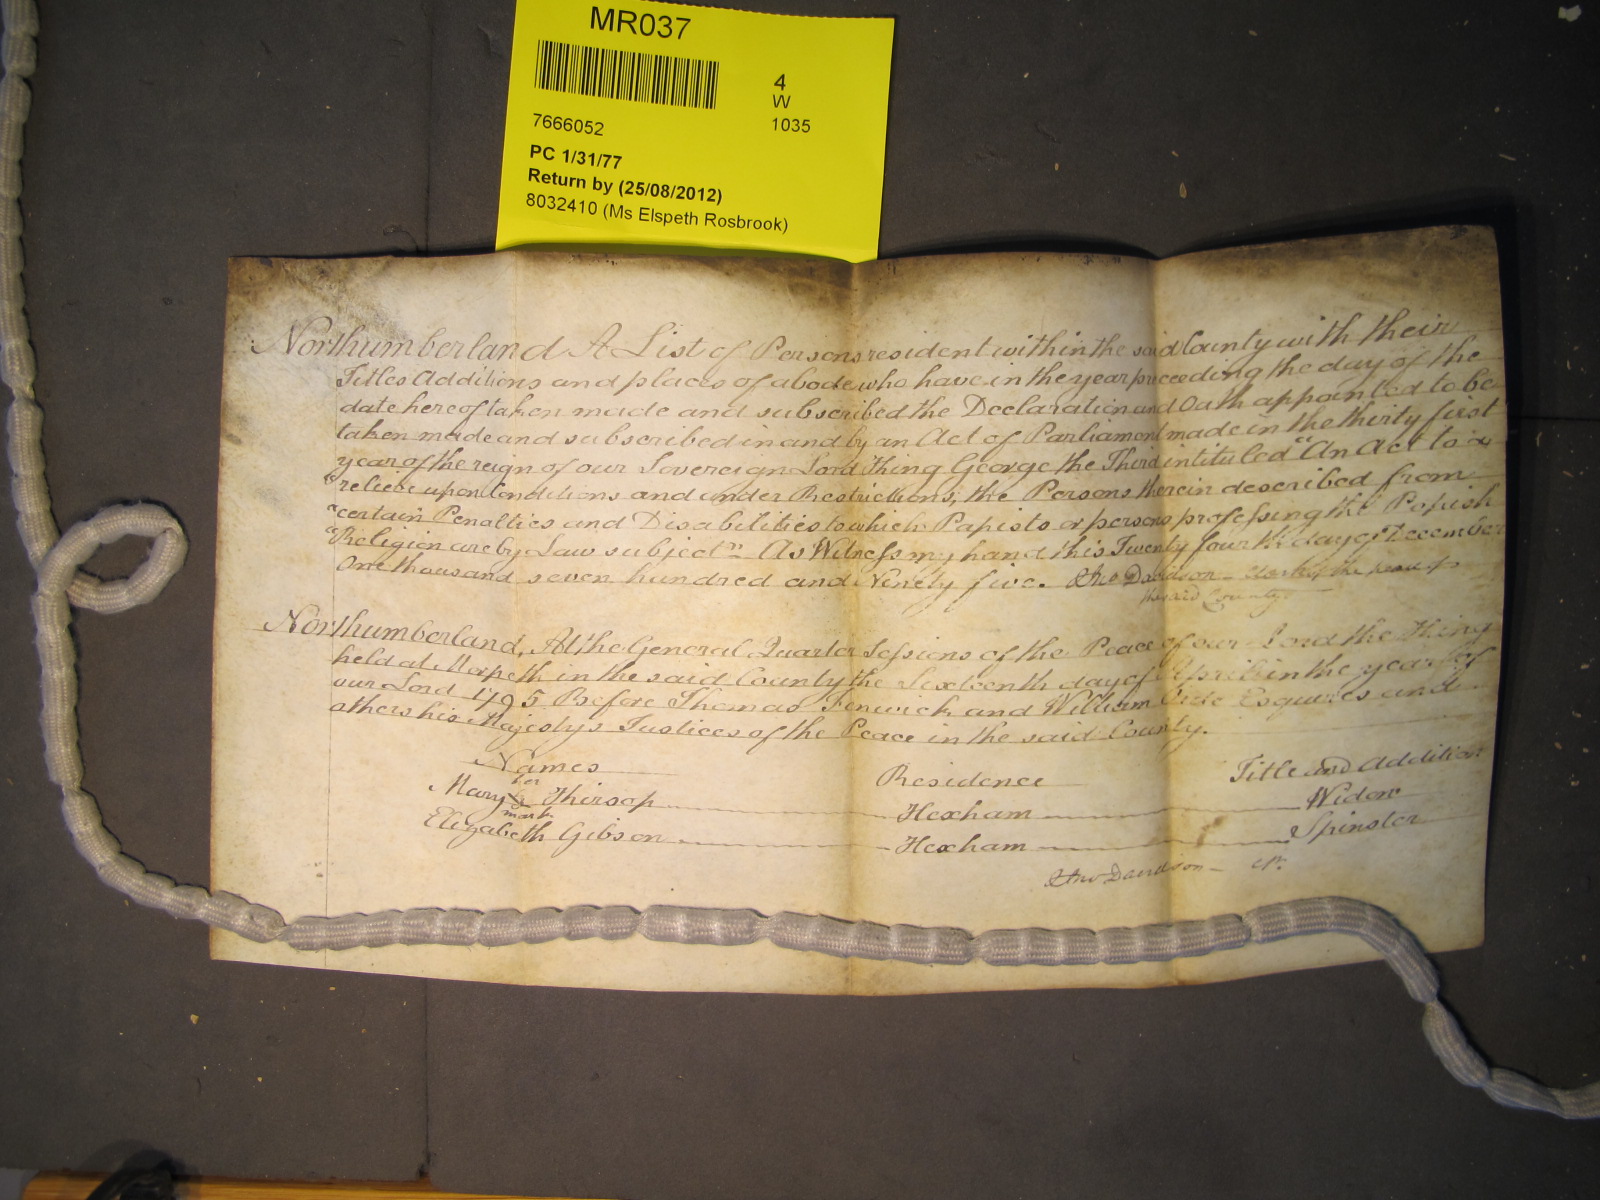 MR037
4
W
1035
7666052
PC 1/31/77
Return by (25/08/2012)
8032410 (Ms Elspeth Rosbrook)
Northumberland A List of Persons resident within the said County with their
Titles Additions and places of abode who have in the year preceeding the day of the
date hereof taken made and subscribed the Declaration and Oath appointed to be
taken made and subscribed in and by an Act of Parliament made in the thirty first
year of the reign of our Sovereign Lord King George the Third intituled "An Act to
"relieve upon Conditions and under Restrictions, the Persons therein described from
"certain Penalties and Disabilities to which Papists or persons professing the Popish
"Religion are by Law subject" As Witness my hand this Twenty fourth day of December
One thousand seven hundred and Ninety five. Davidson Clerk of the peace for
the said County
Northumberland, At the General Quarter Sessions of the Peace of our Lord the King
held at Morpeth in the said County the Sixteenth day of April in the year of
our Lord 1795 Before Thomas Fenwick and William Esquires and
others his Majestys Justices of the Peace in the said County.
Names Residence Title and Addition
her
Mary X Thirsop Hexham Widow
mark
Elizabeth Gibson Hexham Spinster
Davidson